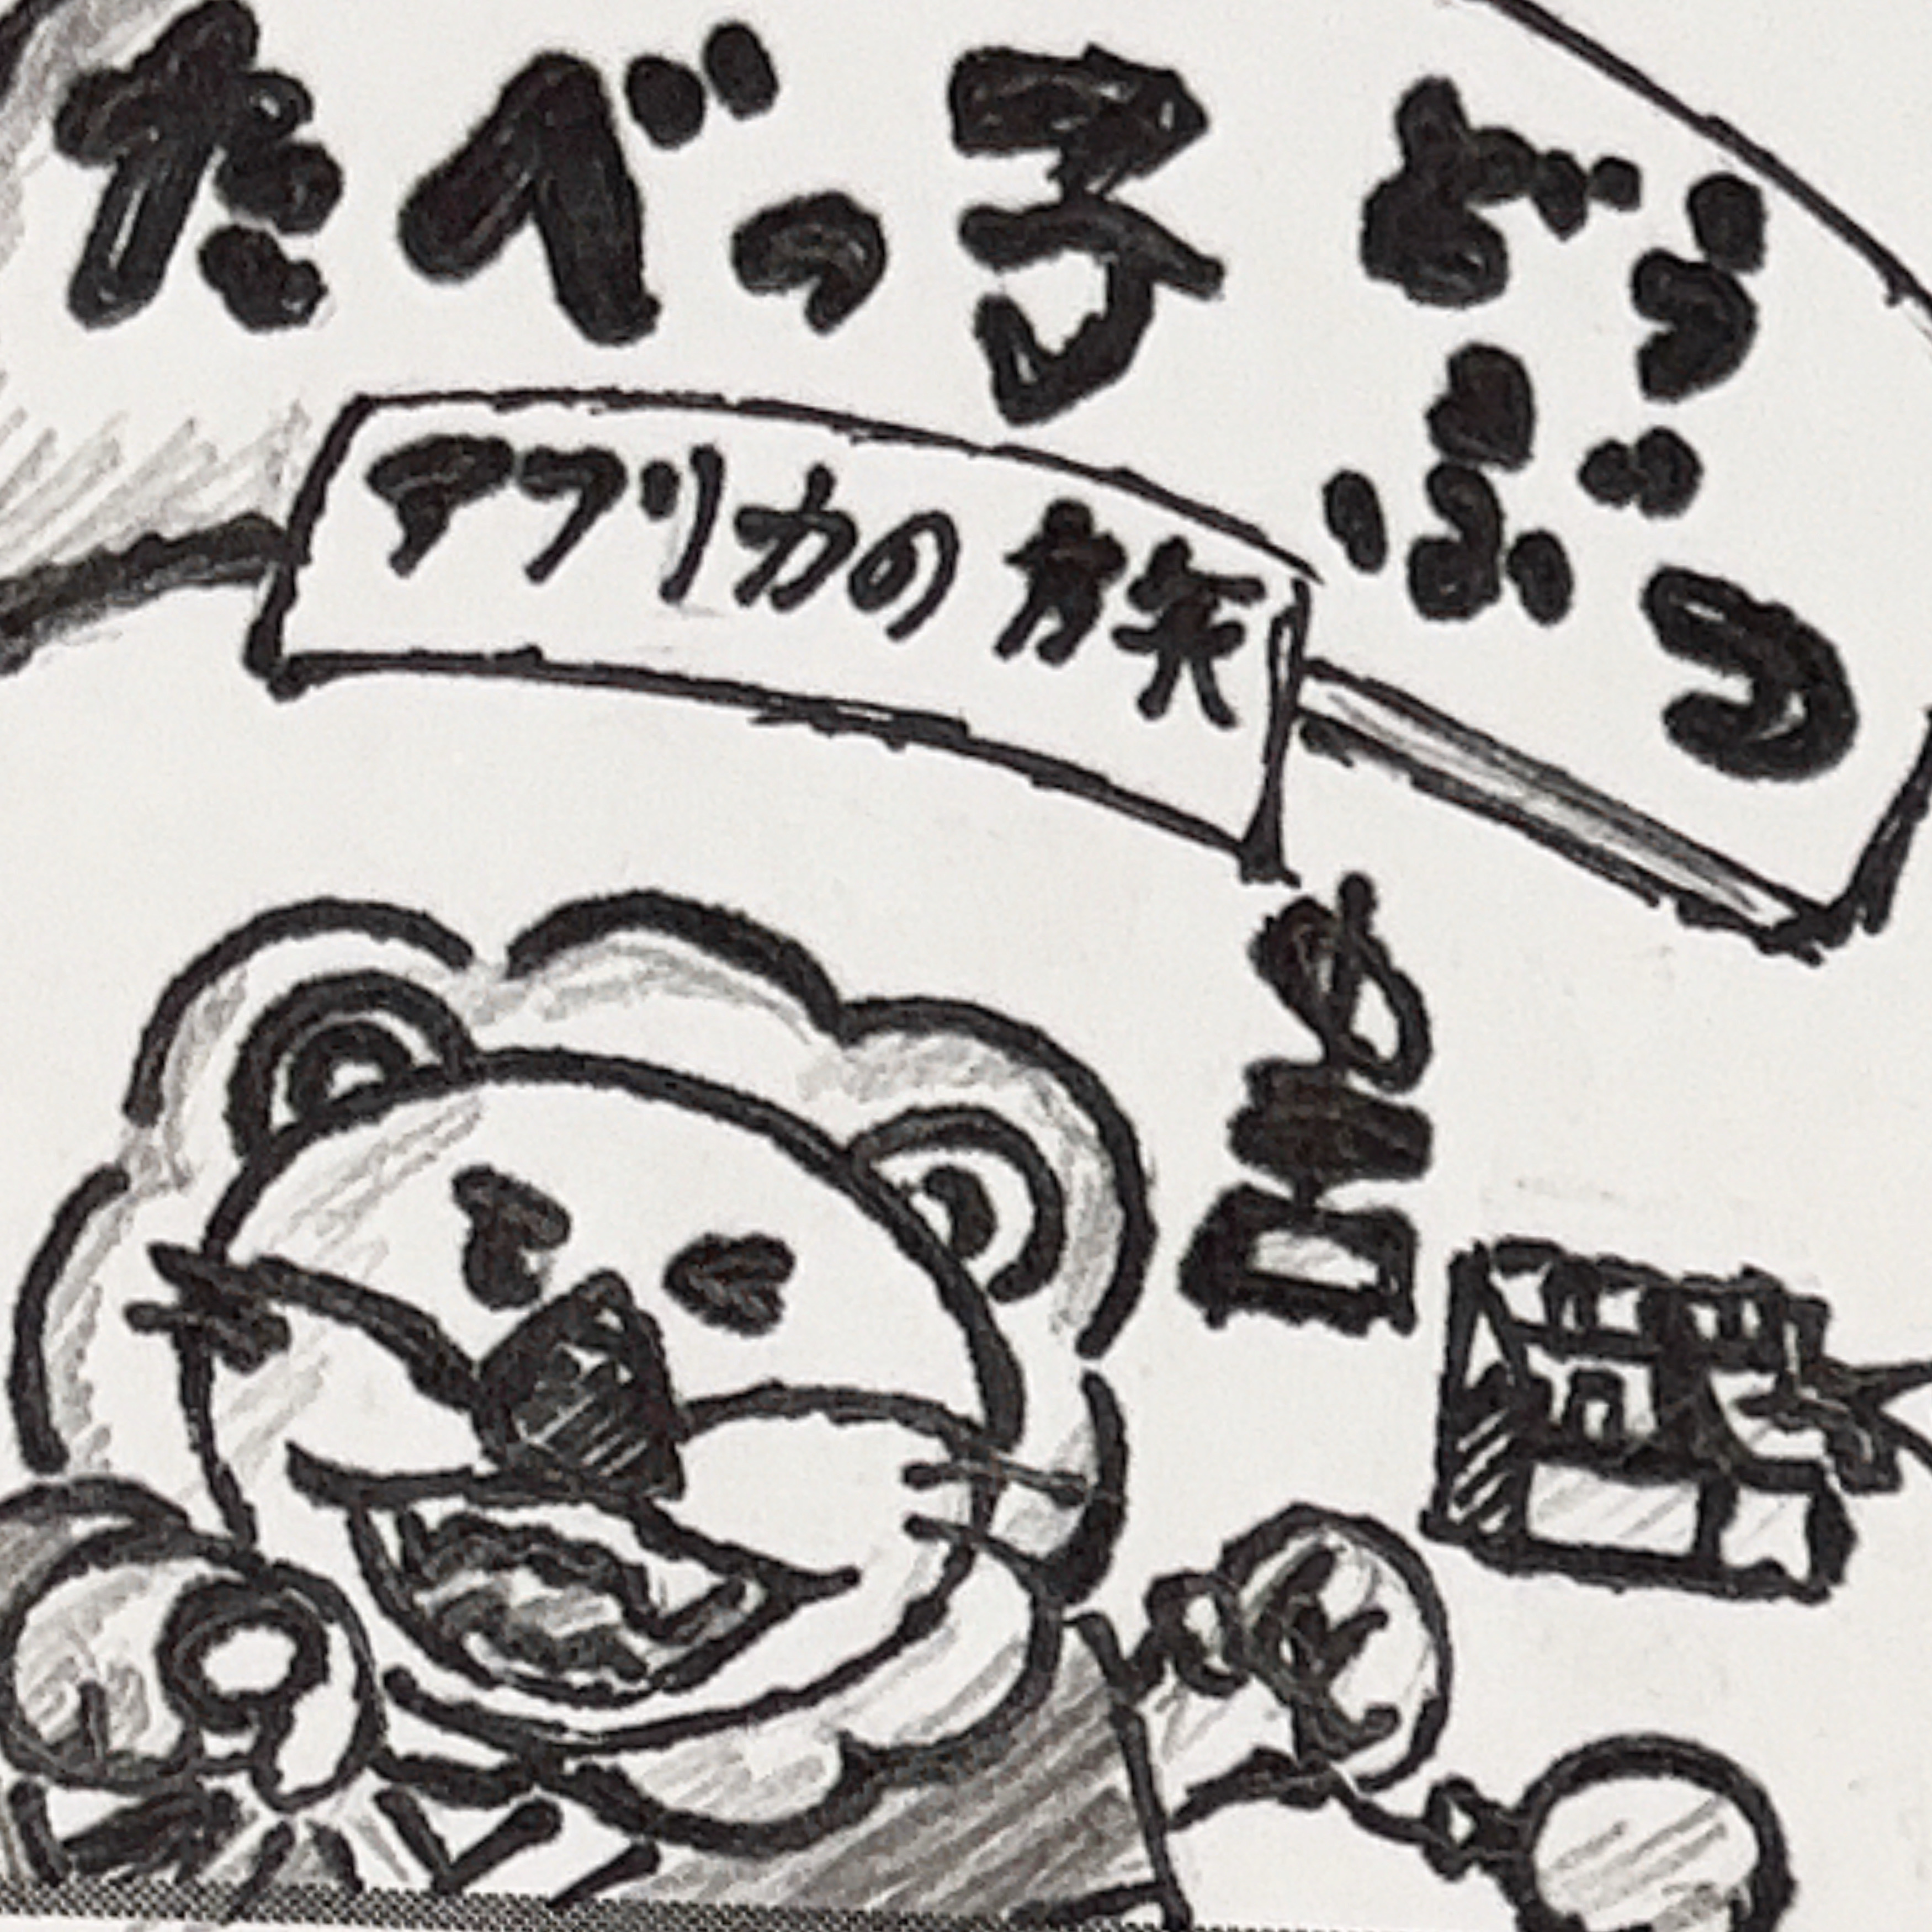 たべっ子どうぶつ
アフリカの旅